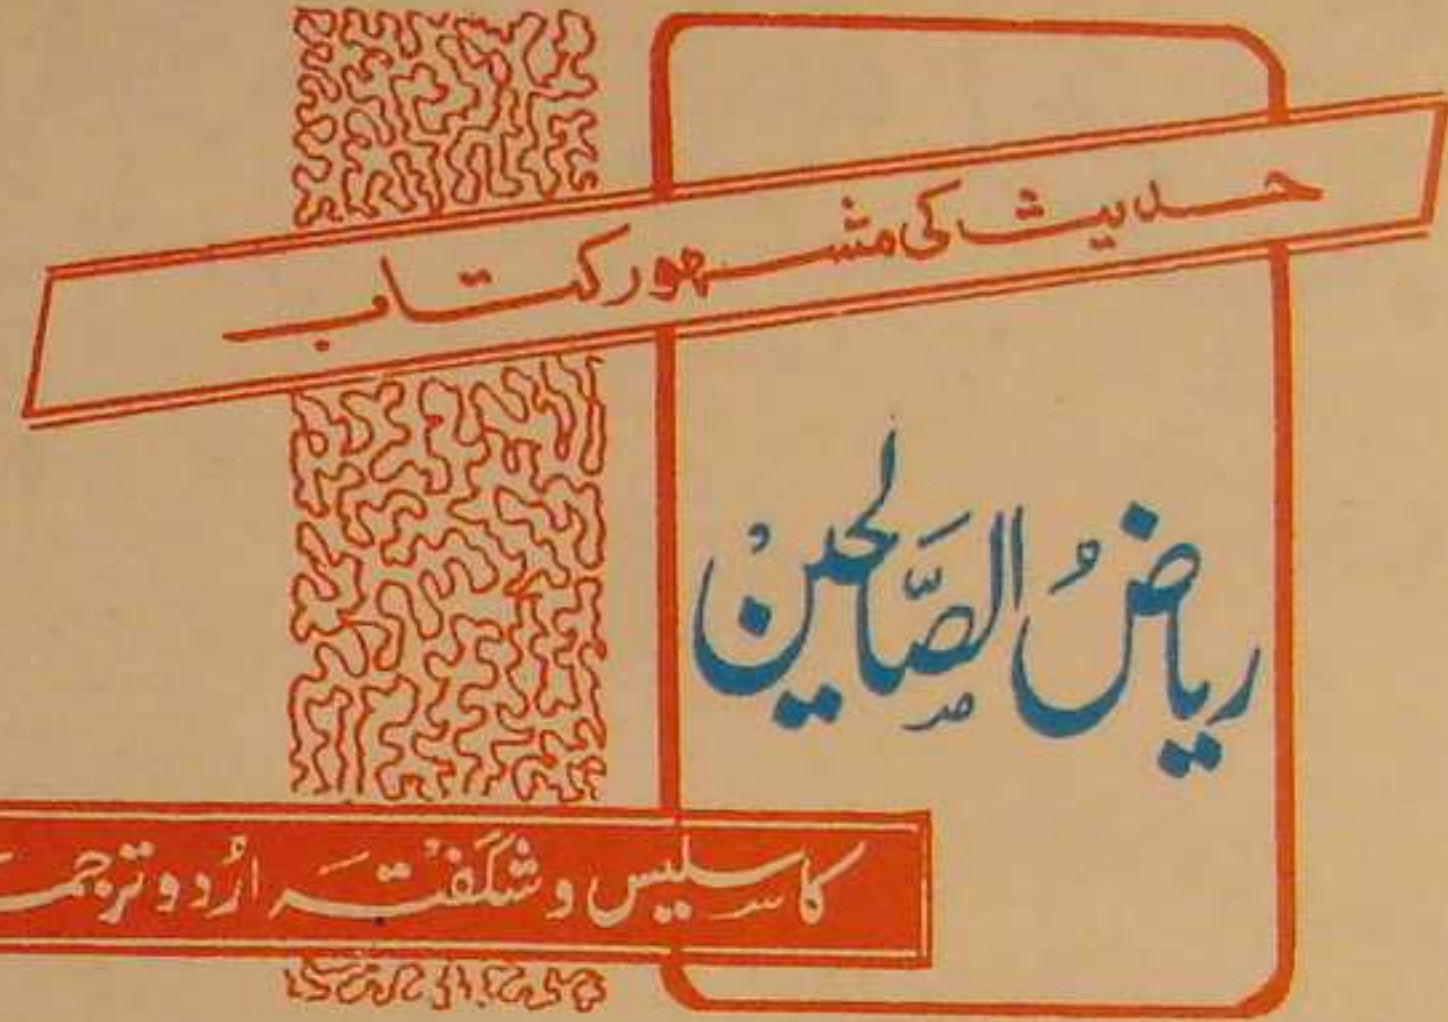 حدیث کی مشہور کتاب
ریاضُ الصَّالحین
کا سلیس و شگفتہ اُردو ترجمہ